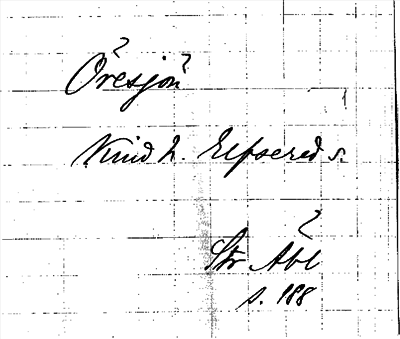 Öresjön
Kind h. Elfsered s.
Str Åbl
s. 188